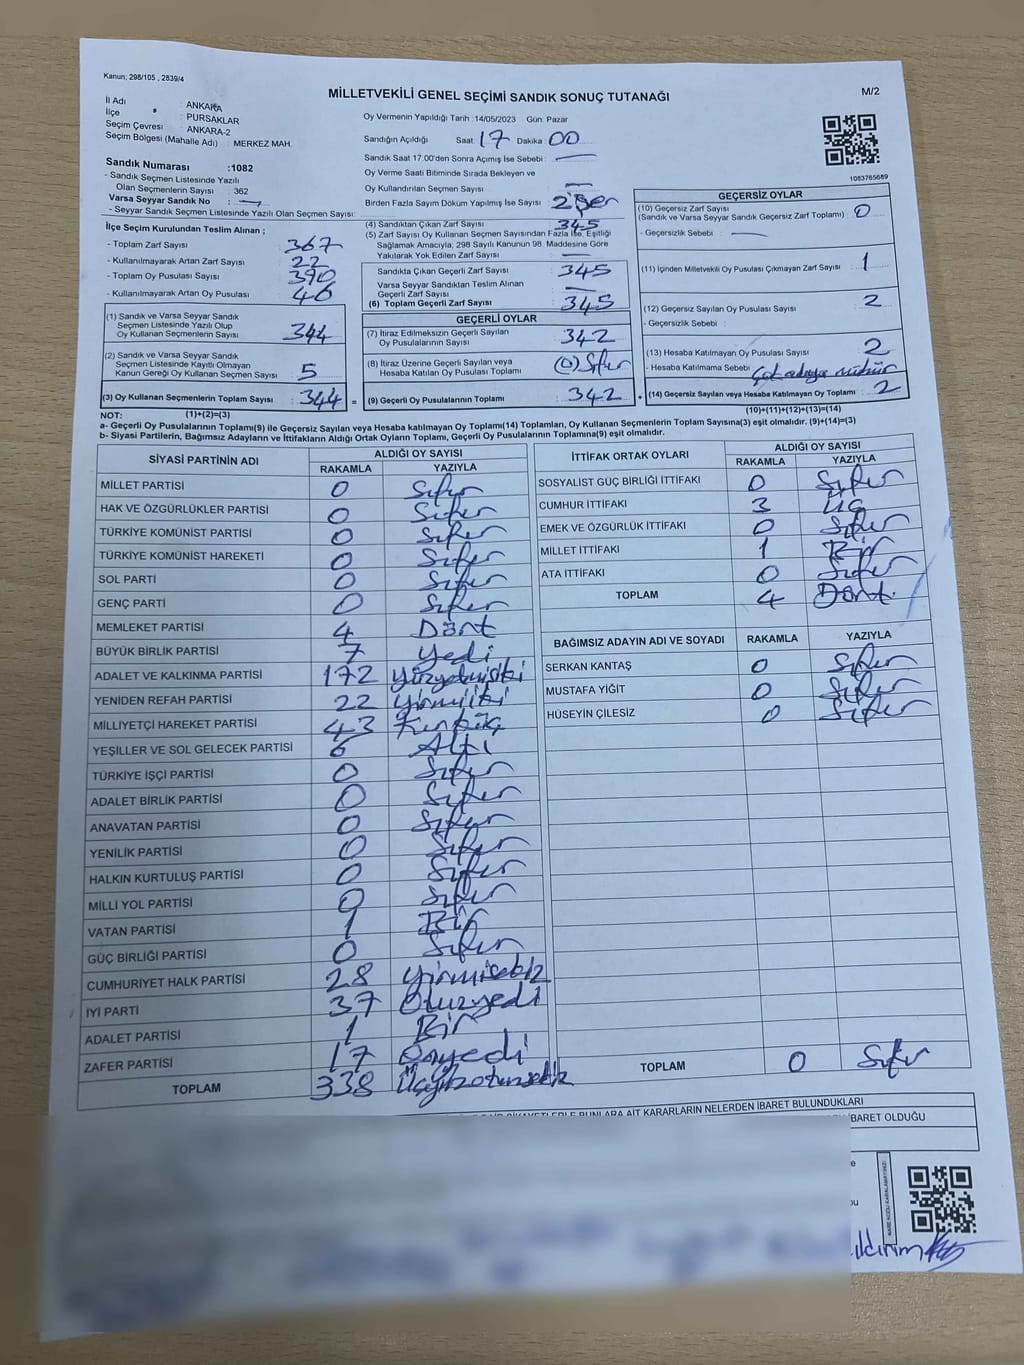 Kanun; 298/105 , 2839/4
MİLLETVEKİLİ GENEL SEÇİMİ SANDIK SONUÇ TUTANAĞI
M/2
İl Adı : ANKARA
İlçe : PURSAKLAR
Seçim Çevresi : ANKARA-2
Seçim Bölgesi (Mahalle Adı) : MERKEZ MAH.
Sandık Numarası :1082
- Sandık Seçmen Listesinde Yazılı
Olan Seçmenlerin Sayısı : 362
Varsa Seyyar Sandık No : —
- Seyyar Sandık Seçmen Listesinde Yazılı Olan Seçmen Sayısı:
İlçe Seçim Kurulundan Teslim Alınan ;
- Toplam Zarf Sayısı : 367
- Kullanılmayarak Artan Zarf Sayısı : 22
- Toplam Oy Pusulası Sayısı : 390
- Kullanılmayarak Artan Oy Pusulası : 46
(1) Sandık ve Varsa Seyyar Sandık
Seçmen Listesinde Yazılı Olup
Oy Kullanan Seçmenlerin Sayısı : 344
(2) Sandık ve Varsa Seyyar Sandık
Seçmen Listesinde Kayıtlı Olmayan
Kanun Gereği Oy Kullanan Seçmen Sayısı : 5
(3) Oy Kullanan Seçmenlerin Toplam Sayısı : 344 =
Oy Vermenin Yapıldığı Tarih :14/05/2023 Gün: Pazar
Sandığın Açıldığı Saat 17 Dakika 00
Sandık Saat 17.00'den Sonra Açımış İse Sebebi : —
Oy Verme Saati Bitiminde Sırada Bekleyen ve
Oy Kullandırılan Seçmen Sayısı : —
Birden Fazla Sayım Döküm Yapılmış İse Sayısı : 2'şer
(4) Sandıktan Çıkan Zarf Sayısı : 345
(5) Zarf Sayısı Oy Kullanan Seçmen Sayısından Fazla İse, Eşitliği
Sağlamak Amacıyla; 298 Sayılı Kanunun 98. Maddesine Göre
Yakılarak Yok Edilen Zarf Sayısı : —
Sandıkta Çıkan Geçerli Zarf Sayısı : 345
Varsa Seyyar Sandıktan Teslim Alınan
Geçerli Zarf Sayısı : —
(6) Toplam Geçerli Zarf Sayısı : 345
GEÇERLİ OYLAR
(7) İtiraz Edilmeksizin Geçerli Sayılan
Oy Pusulalarının Sayısı : 342
(8) İtiraz Üzerine Geçerli Sayılan veya
Hesaba Katılan Oy Pusulası Toplamı : (0) Sıfır
(9) Geçerli Oy Pusulalarının Toplamı : 342 +
1083765689
GEÇERSİZ OYLAR
(10) Geçersiz Zarf Sayısı
(Sandık ve Varsa Seyyar Sandık Geçersiz Zarf Toplamı) : 0
- Geçersizlik Sebebi : —
(11) İçinden Milletvekili Oy Pusulası Çıkmayan Zarf Sayısı : 1
(12) Geçersiz Sayılan Oy Pusulası Sayısı : 2
- Geçersizlik Sebebi :
(13) Hesaba Katılmayan Oy Pusulası Sayısı : 2
- Hesaba Katılmama Sebebi : mühür
(14) Geçersiz Sayılan veya Hesaba Katılmayan Oy Toplamı : 2
NOT: (1)+(2)=(3) (10)+(11)+(12)+(13)=(14)
a- Geçerli Oy Pusulalarının Toplamı(9) ile Geçersiz Sayılan veya Hesaba katılmayan Oy Toplamı(14) Toplamları, Oy Kullanan Seçmenlerin Toplam Sayısına(3) eşit olmalıdır. (9)+(14)=(3)
b- Siyasi Partilerin, Bağımsız Adayların ve İttifakların Aldığı Ortak Oyların Toplamı, Geçerli Oy Pusulalarının Toplamına(9) eşit olmalıdır.
SİYASİ PARTİNİN ADI ALDIĞI OY SAYISI
RAKAMLA YAZIYLA
MİLLET PARTİSİ 0 Sıfır
HAK VE ÖZGÜRLÜKLER PARTİSİ 0 Sıfır
TÜRKİYE KOMÜNİST PARTİSİ 0 Sıfır
TÜRKİYE KOMÜNİST HAREKETİ 0 Sıfır
SOL PARTİ 0 Sıfır
GENÇ PARTİ 0 Sıfır
MEMLEKET PARTİSİ 4 Dört
BÜYÜK BİRLİK PARTİSİ 7 Yedi
ADALET VE KALKINMA PARTİSİ 172 Yüzyetmişiki
YENİDEN REFAH PARTİSİ 22 Yirmiiki
MİLLİYETÇİ HAREKET PARTİSİ 43 Kırküç
YEŞİLLER VE SOL GELECEK PARTİSİ 6 Altı
TÜRKİYE İŞÇİ PARTİSİ 0 Sıfır
ADALET BİRLİK PARTİSİ 0 Sıfır
ANAVATAN PARTİSİ 0 Sıfır
YENİLİK PARTİSİ 0 Sıfır
HALKIN KURTULUŞ PARTİSİ 0 Sıfır
MİLLİ YOL PARTİSİ 0 Sıfır
VATAN PARTİSİ 1 Bir
GÜÇ BİRLİĞİ PARTİSİ 0 Sıfır
CUMHURİYET HALK PARTİSİ 28 Yirmisekiz
İYİ PARTİ 37 Otuzyedi
ADALET PARTİSİ 1 Bir
ZAFER PARTİSİ 17 Onyedi
TOPLAM 338 Üçyüzotuzsekiz
İTTİFAK ORTAK OYLARI ALDIĞI OY SAYISI
RAKAMLA YAZIYLA
SOSYALIST GÜÇ BİRLİĞİ İTTİFAKI 0 Sıfır
CUMHUR İTTİFAKI 3 Üç
EMEK VE ÖZGÜRLÜK İTTİFAKI 0 Sıfır
MİLLET İTTİFAKI 1 Bir
ATA İTTİFAKI 0 Sıfır
TOPLAM 4 Dört.
BAĞIMSIZ ADAYIN ADI VE SOYADI RAKAMLA YAZIYLA
SERKAN KANTAŞ 0 Sıfır
MUSTAFA YİĞİT 0 Sıfır
HÜSEYİN ÇİLESİZ 0 Sıfır
TOPLAM 0 Sıfır
BUNLARA AİT KARARLARIN NELERDEN İBARET BULUNDUKLARI
İBARET OLDUĞU
ıldırım